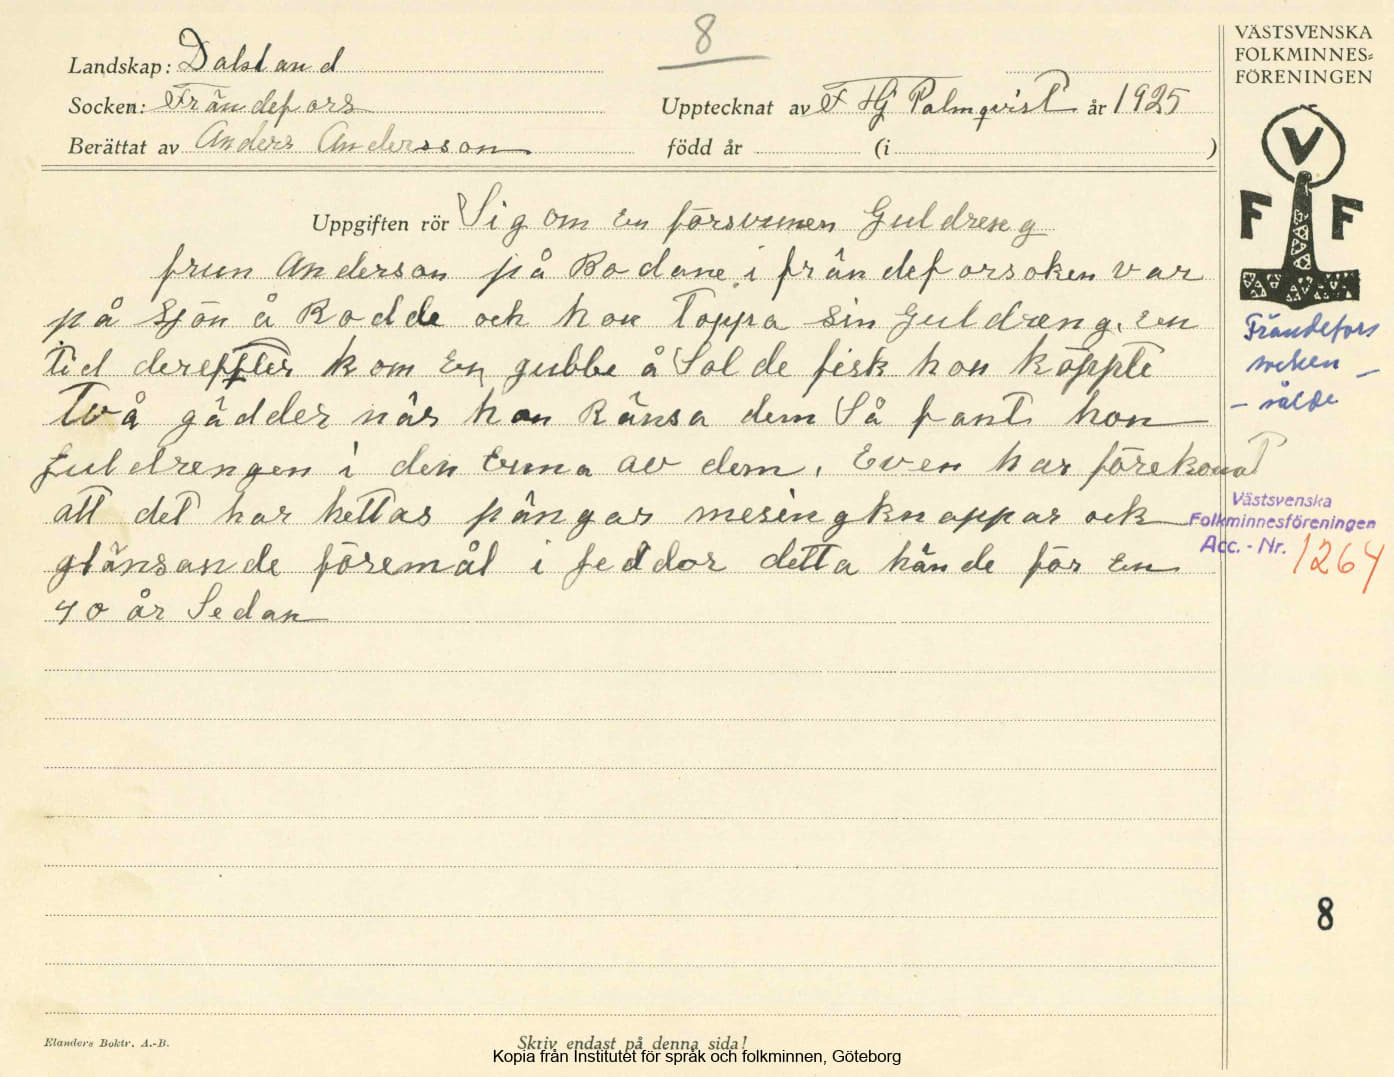 8
VÄSTSVENSKA
FOLKMINNES-
FÖRENINGEN
Landskap: Dalsland
Socken: Frändefors
Upptecknat av F Hj Palmqvist år 1925
Berättat av Anders Andersson
född år (i )
V
F F
Uppgiften rör Sig om en försvunen Guldreng
frun Anderson på Bodane i frändeforsoken var
på sjön å Rodde och hon Toppa sin Guldræng. En
tid derefter kom en gubbe å Solde fisk hon köppte
Två gädder når hon Ränsa dem Så fant hon
Guldrengen i den Erna av dem. Even har förekomat
att det har hettas pängar mesingknappar ock
glänsande föremål i feddor detta hände för en
40 år Sedan
Frändefors
socken –
– sålde
Västsvenska
Folkminnesföreningen
Acc. - Nr. 1264
8
Elanders Boktr. A.-B.
Skriv endast på denna sida!
Kopia från Institutet för språk och folkminnen, Göteborg